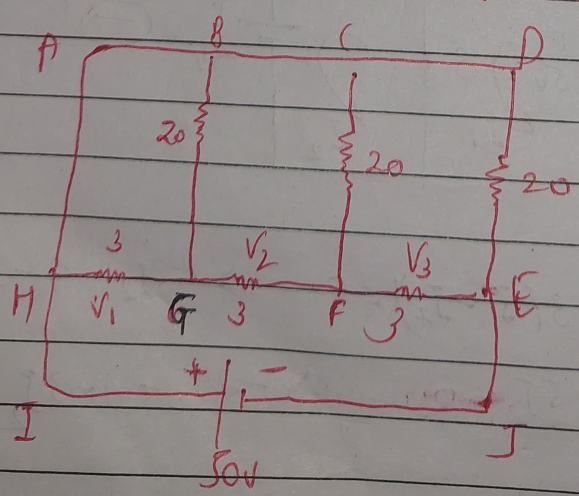 A B C D
20 20 20
3 V2 V3
H V1 G 3 F 3 E
+ -
I J
50V